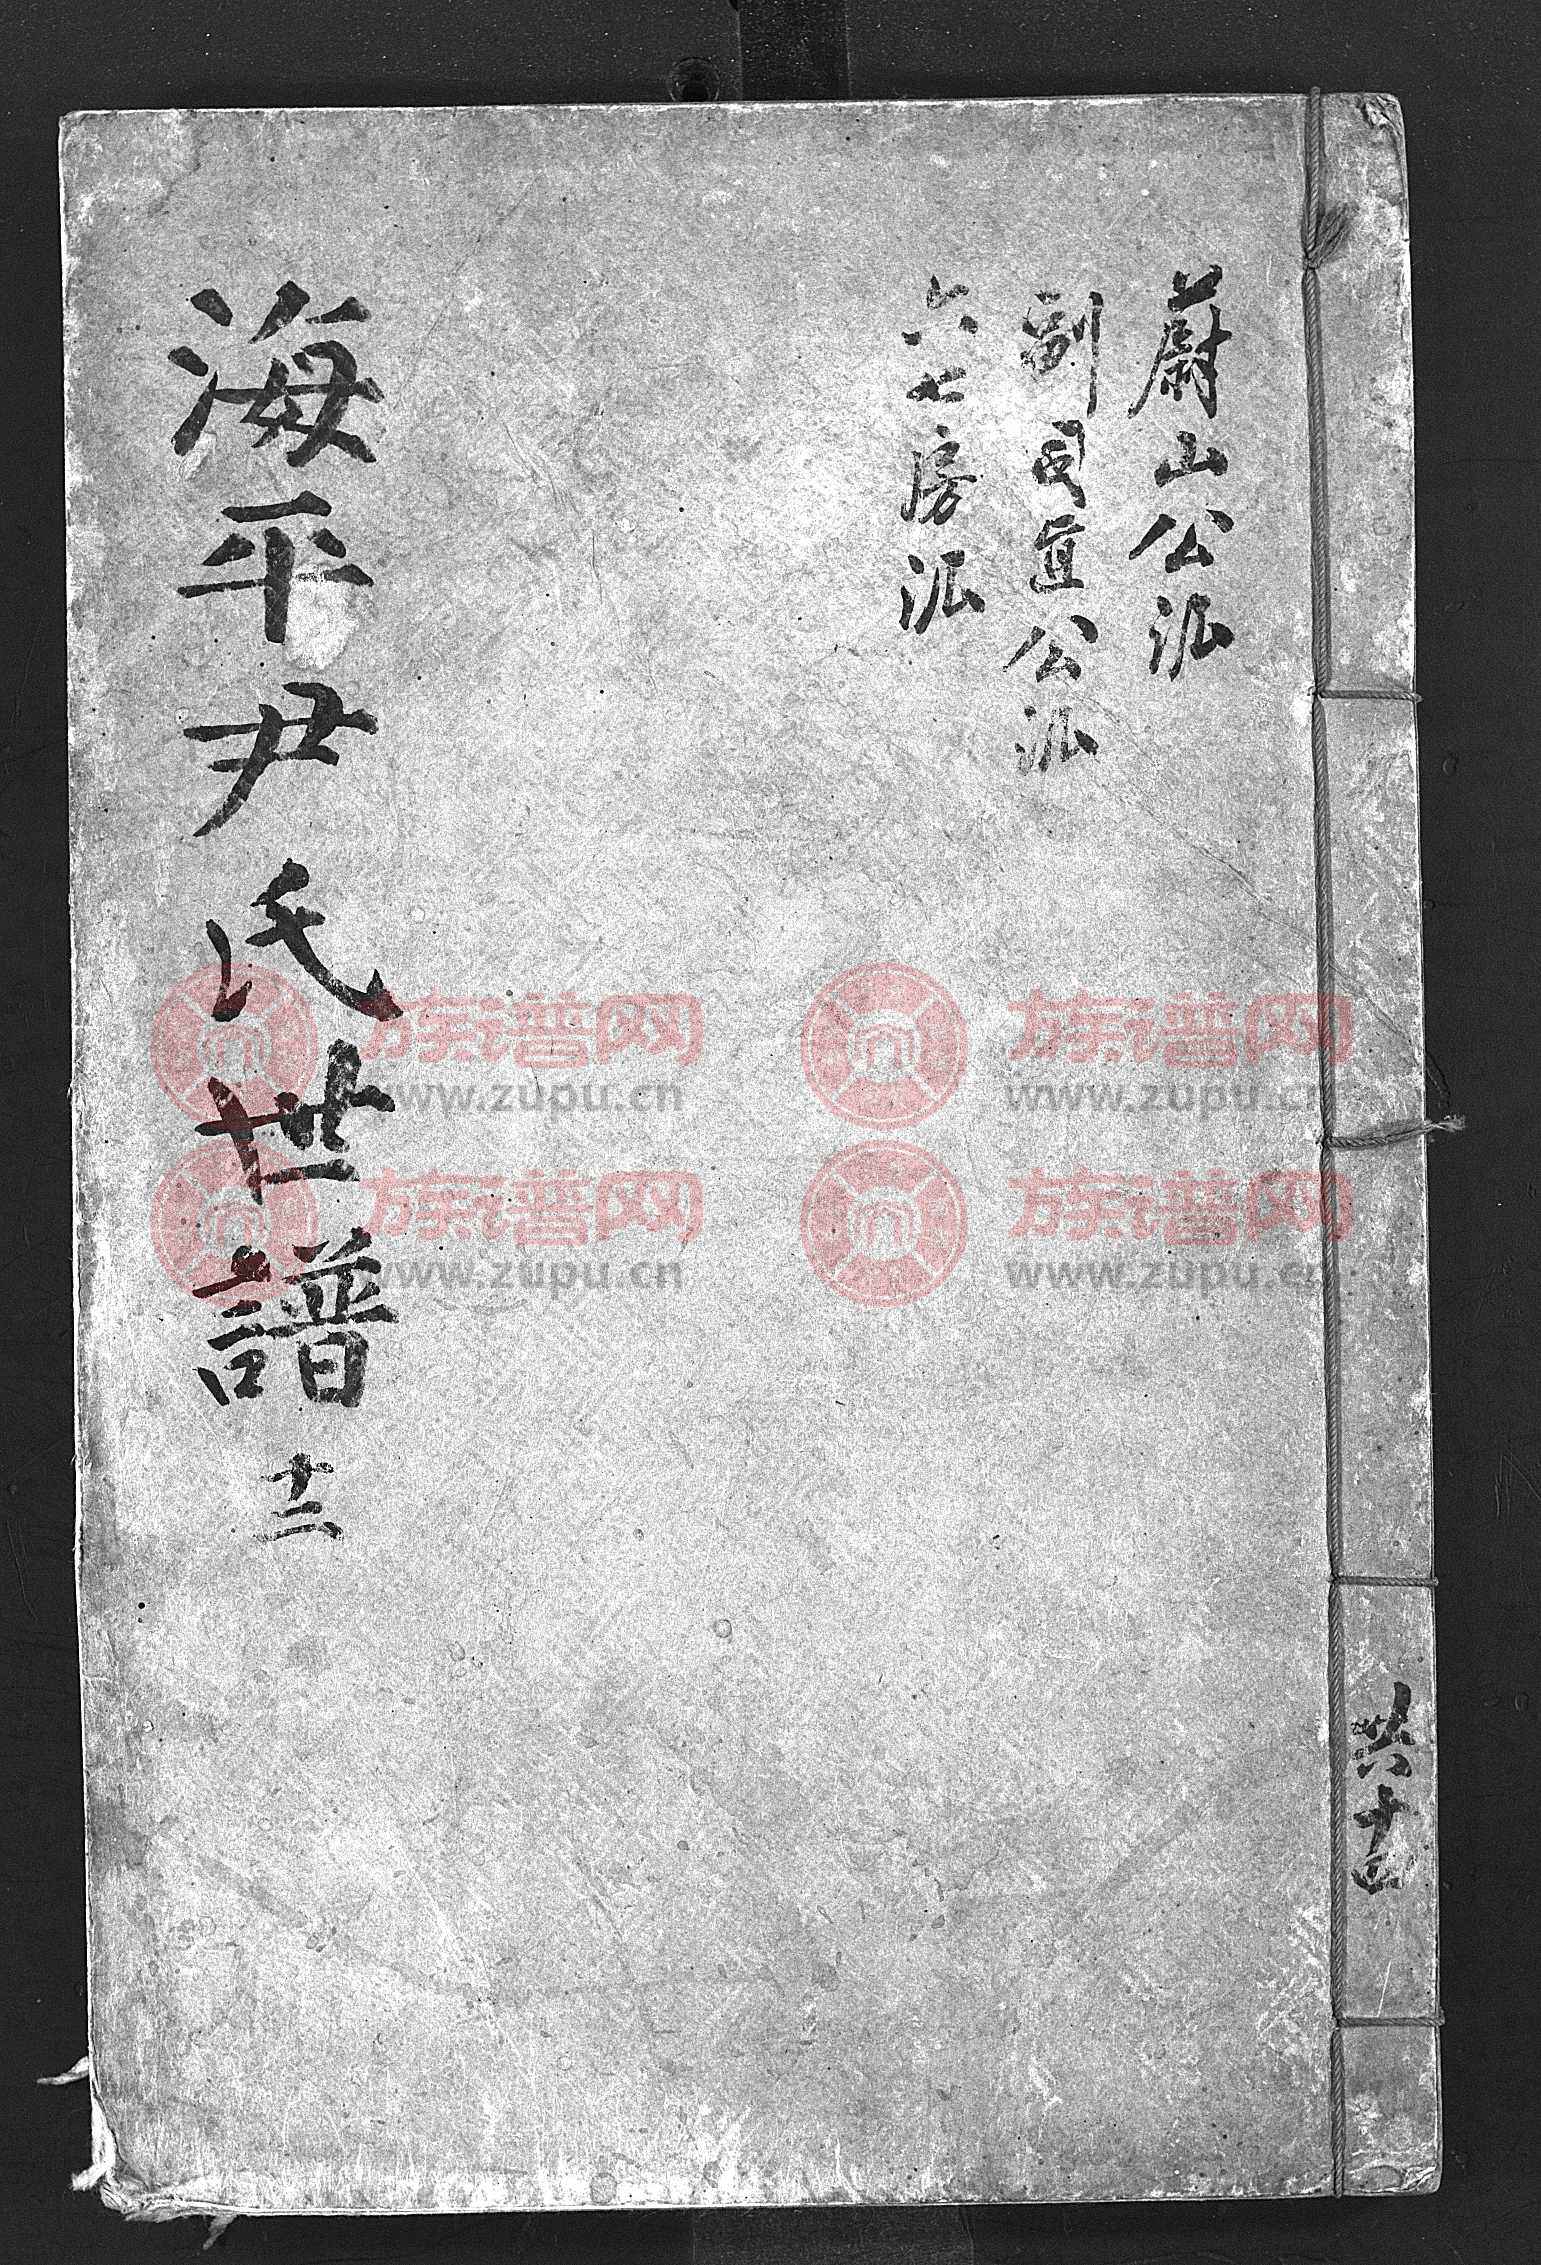 蔚山公派
副司直公派
六七房派
海平尹氏世譜 十二
共十四
族谱网
www.zupu.cn
族谱网
www.zupu.cn
族谱网
www.zupu.cn
族谱网
www.zupu.cn